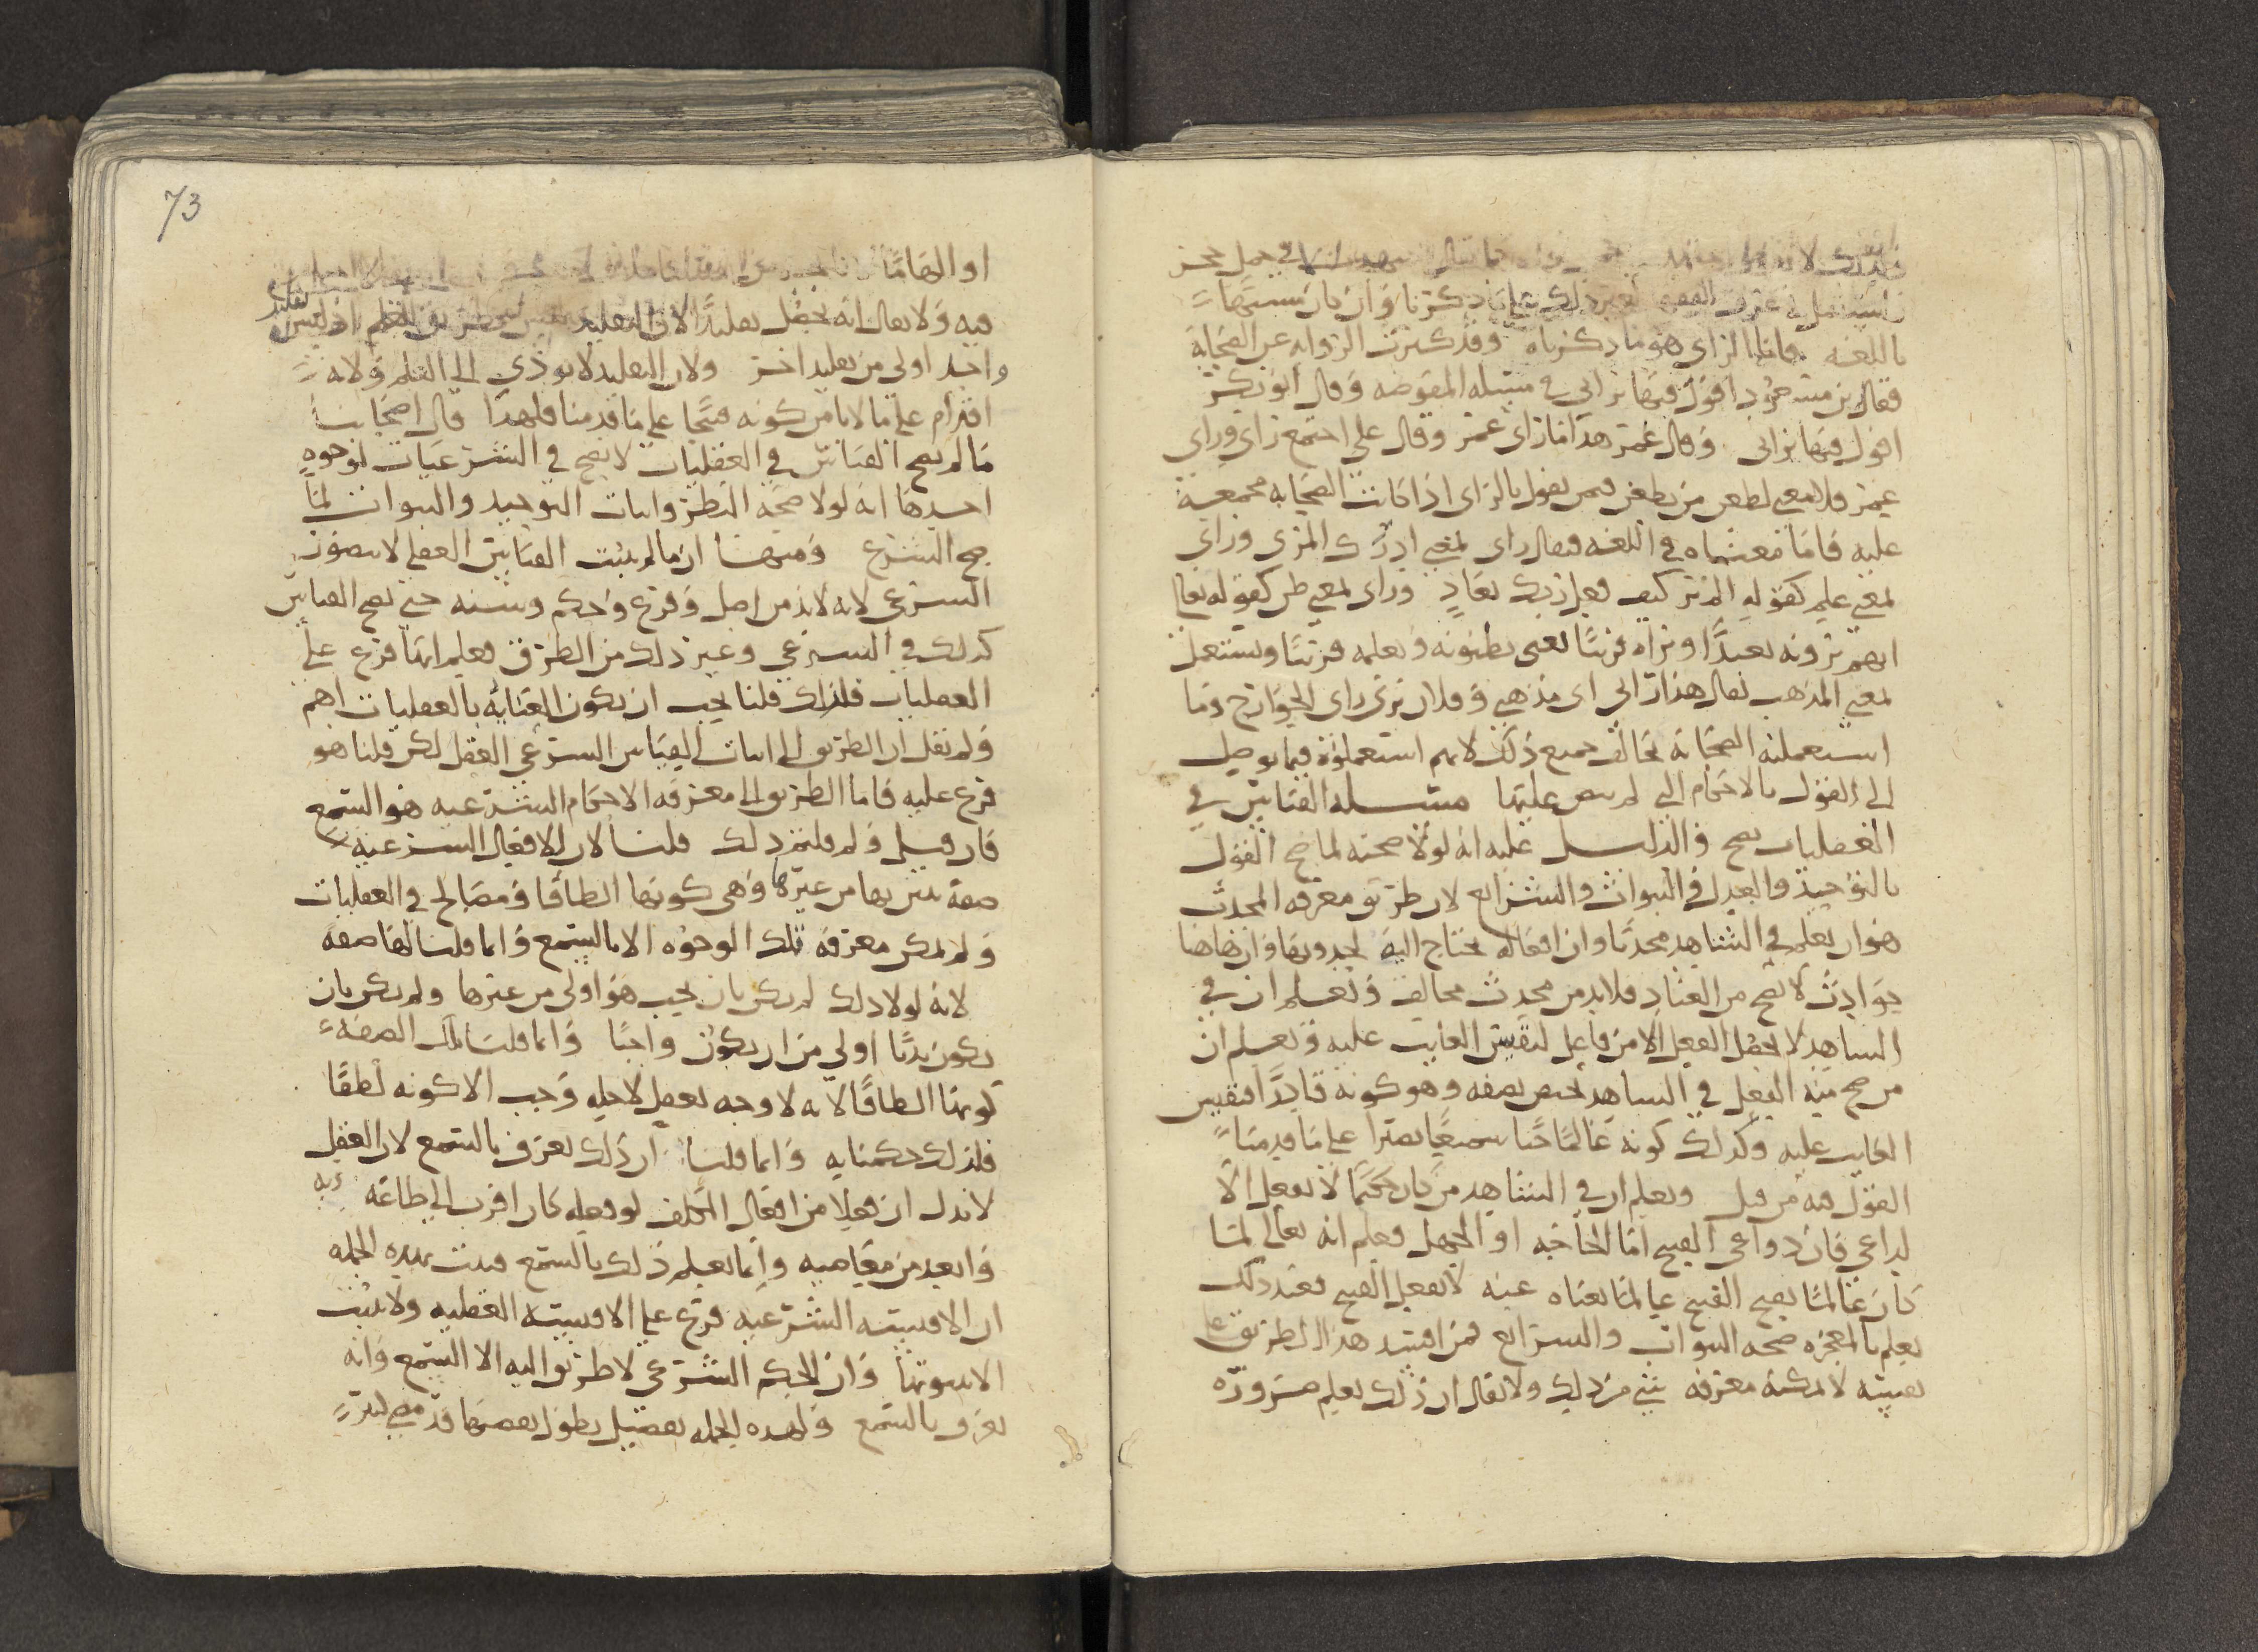 باللغه فاما الراي فهو ما ذكرناه وقد كثرت الروايه عن الصحابة
فقال بن مسعود اقول فيها براي في مسئله المفوضه وقال ابو بكر
اقول فيها براي وقال عمر هذا ما راى عمر وقال علي اجتمع راي وراي
عمر فلا معنى لطعن من يطعن فيمن يقول بالراي اذا كانت الصحابه مجمعة
عليه فاما معناه في اللغه فيقال راى بمعنى ادرك المرئي وراى
بمعنى علم كقوله الم تر كيف فعل ربك بعاد وراى بمعنى ظن كقوله تعالى
انهم يرونه بعيدًا ونراه قريبًا يعني يظنونه ونعلمه قريبًا ويستعمل
بمعنى المذهب يقال هذا رائي اي مذهبي وفلان يرى راي الخوارج وما
استعملته الصحابة يخالف جميع ذلك لانهم استعملوه فيما يوصل
الى القول بالاحكام التي لم ينص عليها مسئلة القياس في
العقليات يصح والدليل عليه انه لولا صحته لما صح القول
بالتوحيد والعدل والنبوات والشرائع لان طريق معرفه المحدث
هو ان يعلم في الشاهد محدثا وان افعاله تحتاج اليه لحدوثها وان هاهنا
حوادث لا تصح من العباد فلابد من محدث مخالف ونعلم ان في
الشاهد لا يحصل الفعل الا من فاعل لنقيس الغايب عليه ونعلم ان
من صح منه الفعل في الشاهد يختص بصفه وهو كونه قادرًا فنقيس
الغايب عليه وكذلك كونه عالمًا حيًا سميعًا بصيرًا على ما قدمنا
القول فيه من قبل ونعلم ان في الشاهد من كان حكيمًا لا يفعل الا
لداعي فان دواعي القبيح اما الحاجه او الجهل فيعلم انه تعالى لما
كان عالمًا بقبح القبيح عالما بغناه عنه لا يفعل القبيح فعند ذلك
يعلم بالمعجزه صحه النبوات والشرائع فمن افسد هذا الطريق على
نفسه لا يمكنه معرفه شي من ذلك ولا يقال ان ذلك يعلم ضروره
73
او الهامًا
فيه ولا يقال انه يحصل تقليدًا لان التقليد ليس بطريق للعلم اذ ليس تقليد
واحد اولى من تقليد اخر ولان التقليد لا يودي الى العلم ولانه
اقدام على ما لا يامن كونه قبيحًا على ما قدمنا فلهذا قال اصحابنا
ما لم يصح القياس في العقليات لا يصح في الشرعيات لوجوه
احدها انه لولا صحه النظر واثبات التوحيد والنبوات لما
صح الشرع ومنها ان ما لم يثبت القياس العقلي لا يتصور
الشرعي لانه لابد من اصل وفرع وحكم وشبه حتى يصح القياس
كذلك في الشرعي وغير ذلك من الطرق فعلم انها فرع على
العقليات فلذلك قلنا يجب ان يكون العنايه بالعقليات اهم
ولم نقل ان الطريق الى اثبات القياس الشرعي العقل لكن قلنا هو
فرع عليه فاما الطريق الى معرفه الاحكام الشرعيه هو السمع
فان قيل ولم قلتم ذلك قلنا لان للافعال الشرعيه
صفة تتميز بها من غيرها وهي كونها الطافا ومصالح في العقليات
ولم يمكن معرفه تلك الوجوه الا بالسمع وانما قلنا لها صفه
لانه لولا ذلك لم يكن بان يجب هو اولى من غيرها ولم يكن بان
يكون ندبًا اولى من ان يكون واجبًا وانما قلنا تلك الصفه
كونها الطافًا لانه لا وجه يعقل لاجله وجب الا كونه لطفًا
فلذلك حكمنا به وانما قلنا ان ذلك يعرف بالسمع لان العقل
لا يدل ان فعلا من افعال المكلف لو فعله كان اقرب الى طاعة ربه
وابعد من معاصيه وانما يعلم ذلك بالسمع فثبت بهذه الجمله
ان الاقيسه الشرعيه فرع على الاقيسه العقليه ولا يثبت
الا بثبوتها وان الحكم الشرعي لا طريق اليه الا السمع وانه
يعرف بالسمع ولهذه الجمله تفصيل يطول بعضها قد مضى